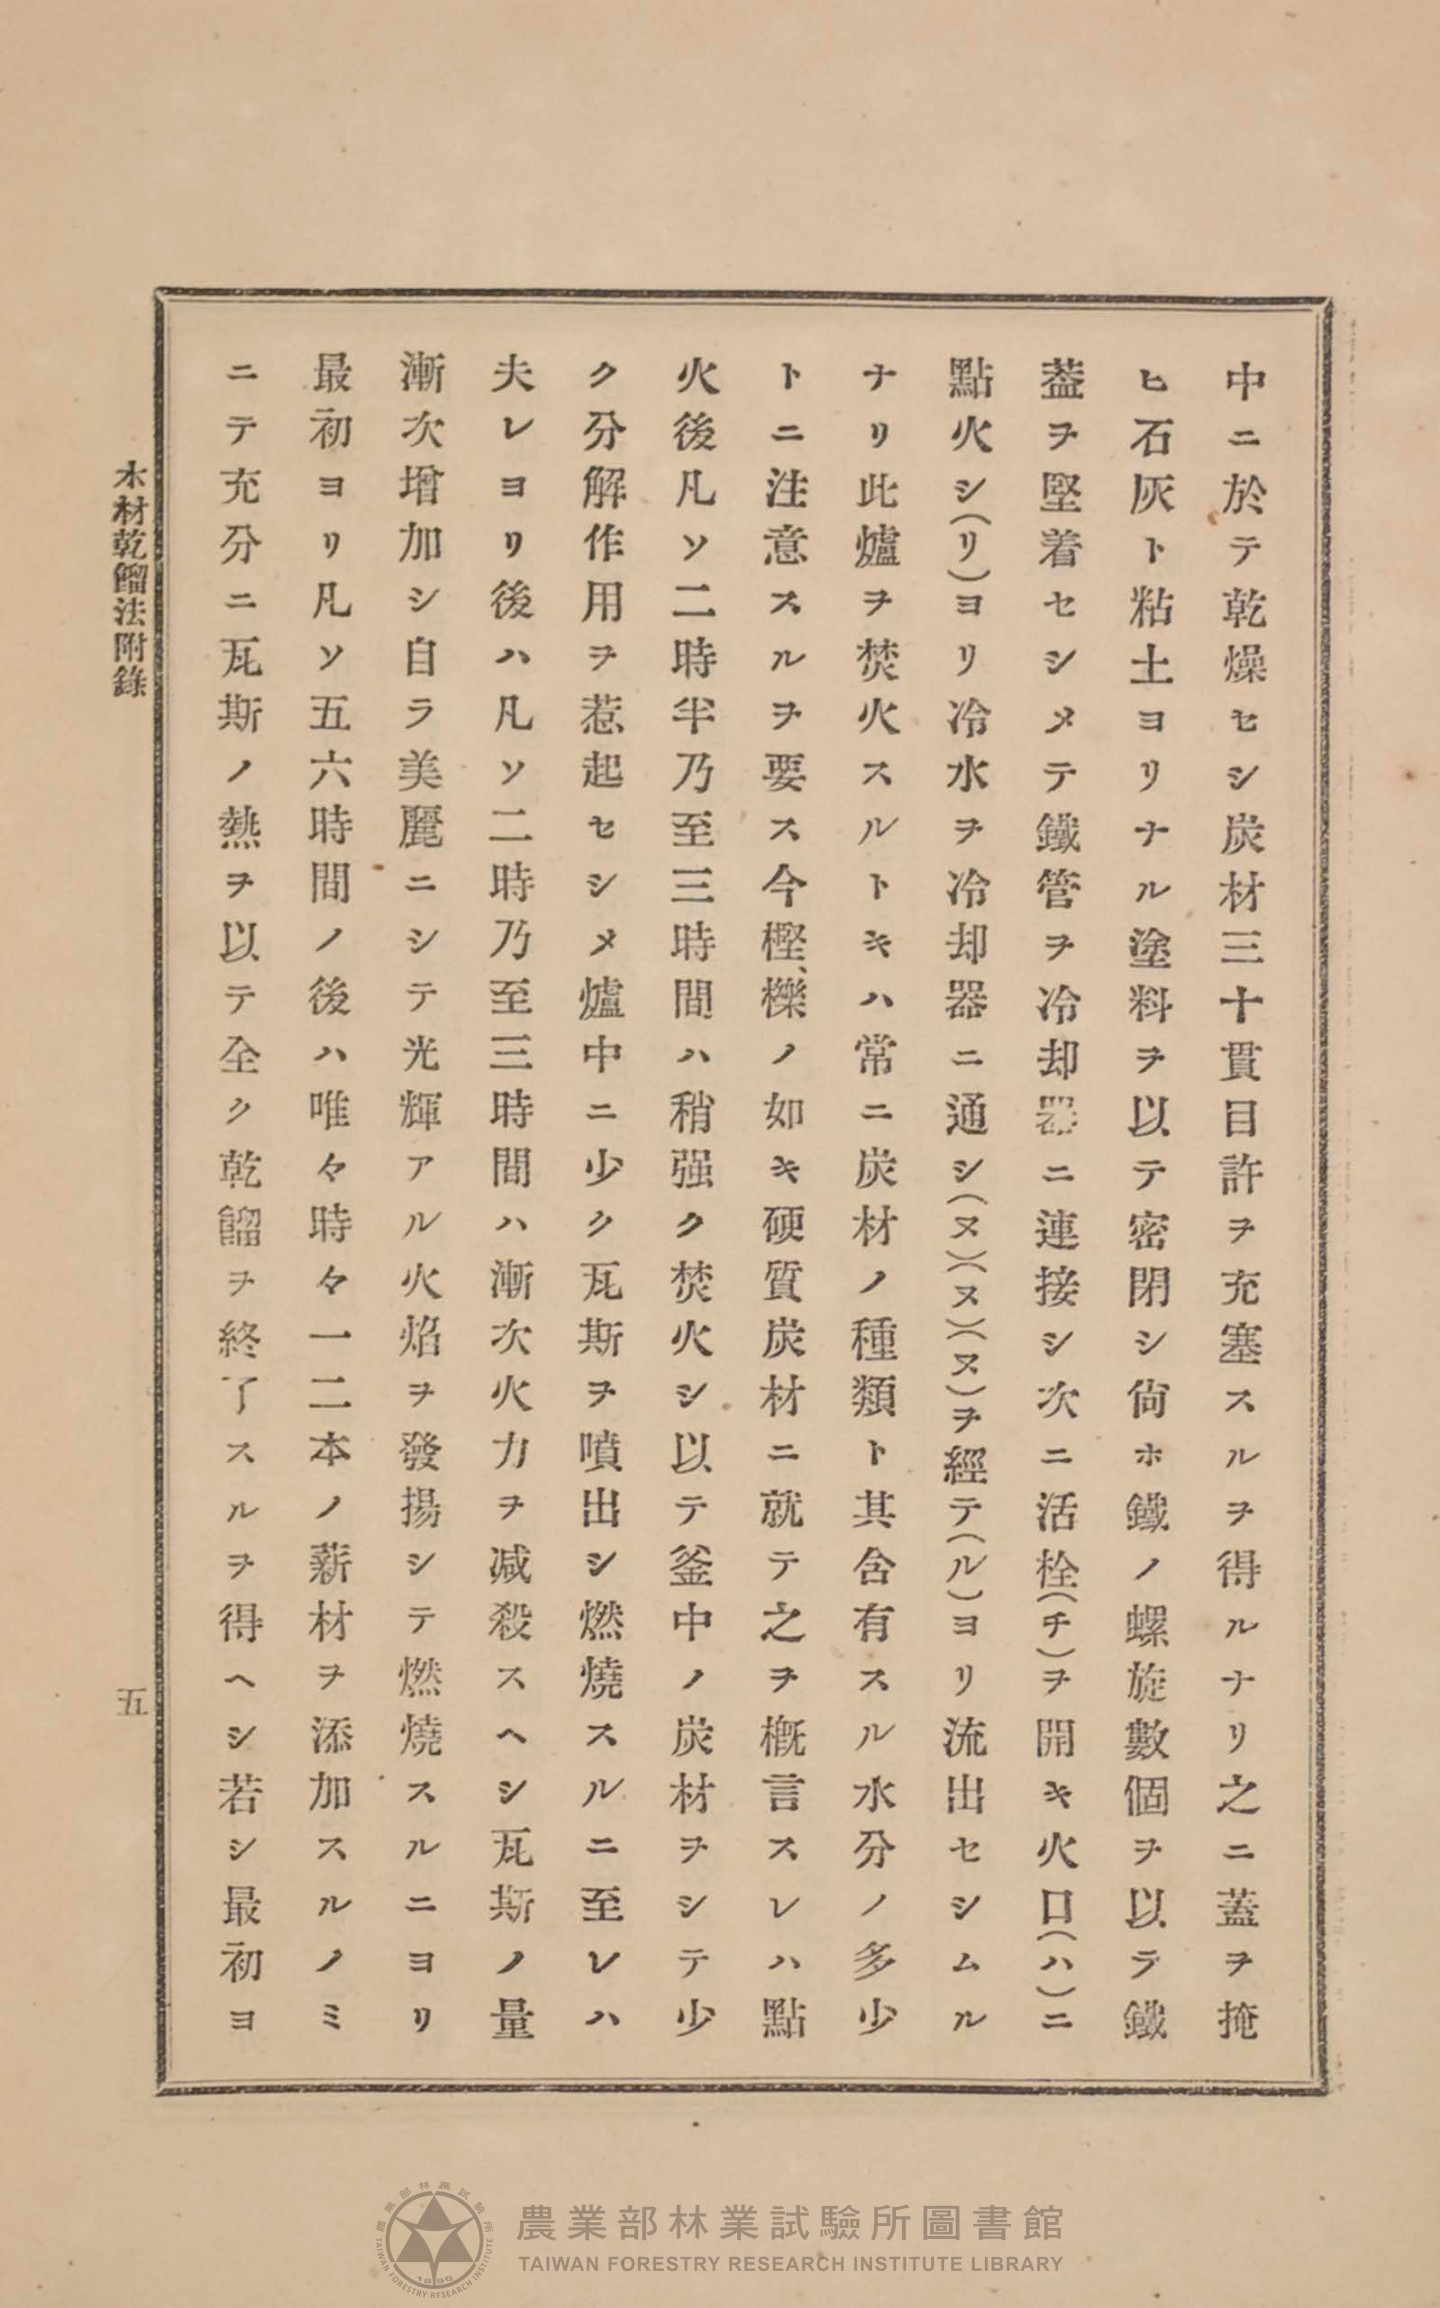 中ニ於テ乾燥セシ炭材三十貫目許ヲ充塞スルヲ得ルナリ之ニ蓋ヲ掩
ヒ石灰ト粘土ヨリナル塗料ヲ以テ密閉シ尙ホ鐵ノ螺旋數個ヲ以テ鐵
葢ヲ堅着セシメテ鐵管ヲ冷却器ニ連接シ次ニ活栓(チ)ヲ開キ火口(ハ)ニ
點火シ(リ)ヨリ冷水ヲ冷却器ニ通シ(ヌ)(ヌ)(ヌ)ヲ經テ(ル)ヨリ流出セシムル
ナリ此爐ヲ焚火スルトキハ常ニ炭材ノ種類ト其含有スル水分ノ多少
トニ注意スルヲ要ス今樫、櫟ノ如キ硬質炭材ニ就テ之ヲ槪言スレハ點
火後凡ソ二時半乃至三時間ハ稍强ク焚火シ以テ釜中ノ炭材ヲシテ少
ク分解作用ヲ惹起セシメ爐中ニ少ク瓦斯ヲ噴出シ燃燒スルニ至レハ
夫レヨリ後ハ凡ソ二時乃至三時間ハ漸次火力ヲ减殺スヘシ瓦斯ノ量
漸次增加シ自ラ美麗ニシテ光輝アル火焰ヲ發揚シテ燃燒スルニヨリ
最初ヨリ凡ソ五六時間ノ後ハ唯々時々一二本ノ薪材ヲ添加スルノミ
ニテ充分ニ瓦斯ノ熱ヲ以テ全ク乾餾ヲ終了スルヲ得ヘシ若シ最初ヨ
木材乾餾法附錄
五
農業部林業試驗所圖書館
TAIWAN FORESTRY RESEARCH INSTITUTE LIBRARY
農業部林業試驗所
TAIWAN FORESTRY RESEARCH INSTITUTE
1896